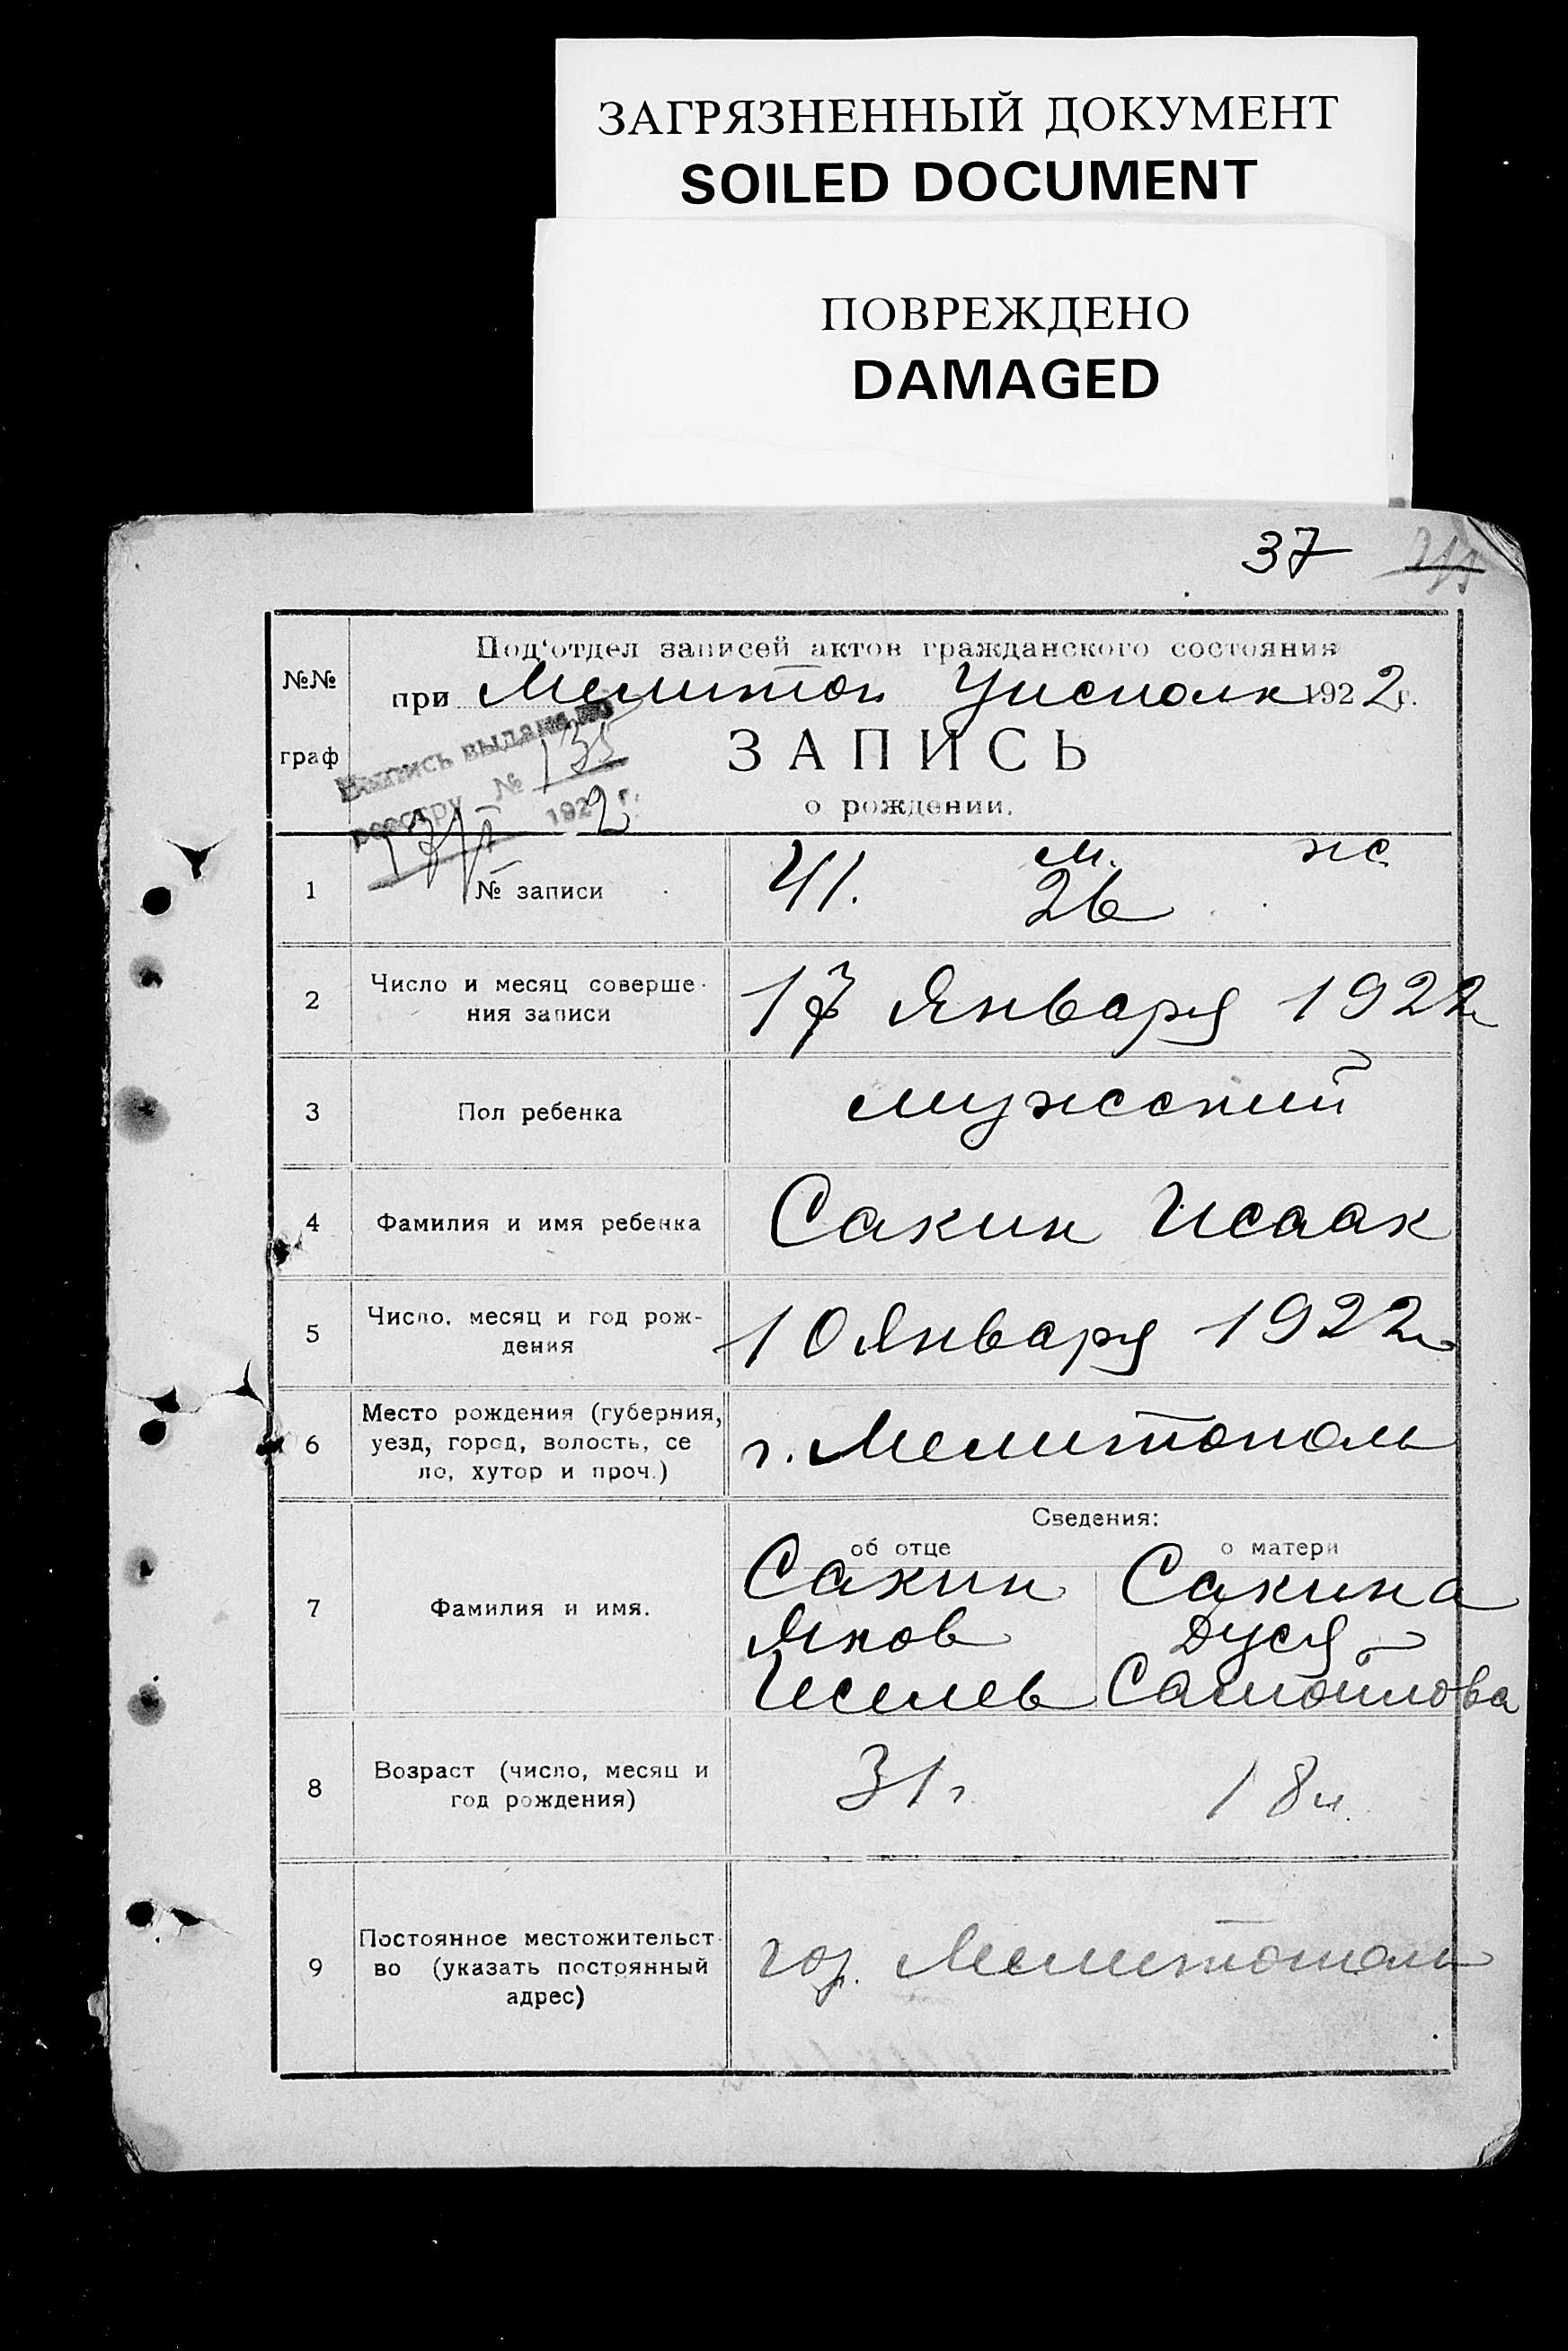 ЗАГРЯЗНЕННЫЙ ДОКУМЕНТ
SOILED DOCUMENT
ПОВРЕЖДЕНО
DAMAGED
37
№№
граф
Под'отдел записей актов гражданского состояния
при Мелитоп Уисполк 1922г.
ЗАПИСЬ
о рождении.
Выпись выдана по
реестру № 135
17/I 1922 г.
1 № записи 41. м. 26 ж
2 Число и месяц соверше-
ния записи
17 Января 1922
3 Пол ребенка мужский
4 Фамилия и имя ребенка Сакин Исаак
5 Число, месяц и год рож-
дения
10 Января 1922
6 Место рождения (губерния,
уезд, город, волость, се
ло, хутор и проч.)
г. Мелитополь
Сведения:
об отце о матери
7 Фамилия и имя.
Сакин Сакина
Яков Дуся
Иселев Самойлова
8 Возраст (число, месяц и
год рождения)
31 г 18 л.
9 Постоянное местожительст-
во (указать постоянный
адрес)
гор. Мелитополь